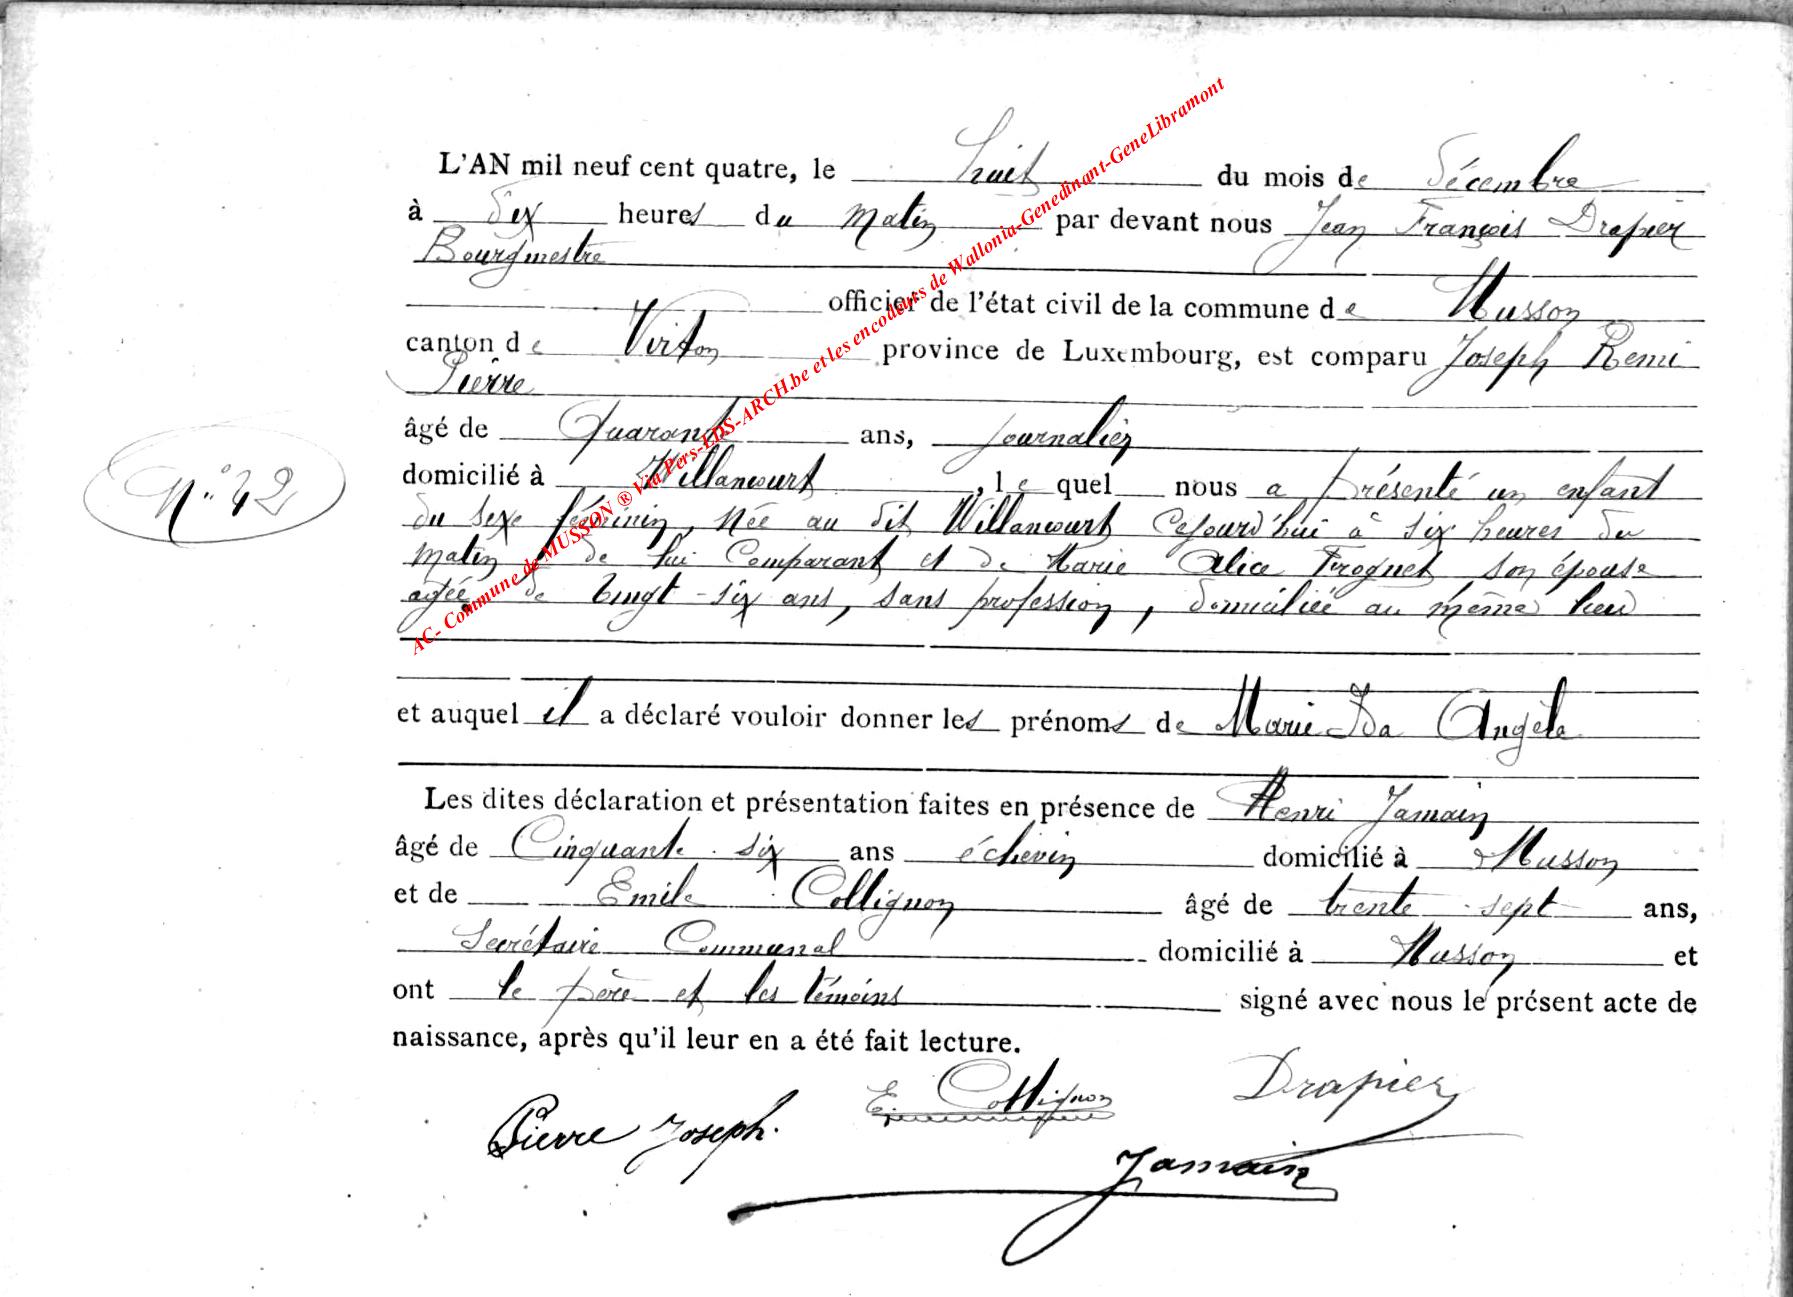 L'AN mil neuf cent quatre, le huit du mois de décembre
à dix heures du matin par devant nous Jean François Drapier
Bourgmestre
officier de l'état civil de la commune de Musson
canton de Virton province de Luxembourg, est comparu Joseph Remi
Pierre
âgé de Quarante ans, journalier
domicilié à Willancourt, lequel nous a présenté un enfant
du sexe féminin, née au dit Willancourt Cejourd'hui à six heures du
matin, de lui Comparant et de Marie Alice Frognet son épouse
agée de vingt-six ans, sans profession, domiciliée au même lieu
et auquel il a déclaré vouloir donner les prénoms de Marie Ida Angèle
Les dites déclaration et présentation faites en présence de Henri Jamain
âgé de Cinquante-six ans échevin domicilié à Musson
et de Emile Collignon âgé de trente-sept ans,
Secrétaire Communal domicilié à Musson et
ont le père et les témoins signé avec nous le présent acte de
naissance, après qu'il leur en a été fait lecture.
N° 42
Pierre Joseph. E. Collignon Drapier
Jamain
AC- Commune de MUSSON ® Via Pers-LDS-ARCH.be et les encodeurs de Wallonia-Genedinant-GeneLibramont